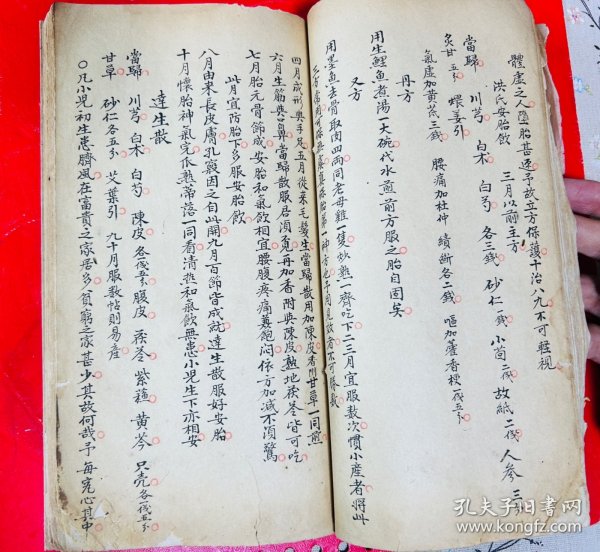 體虛之人墮胎甚速予故立方保護十治八九不可輕視
洪氏安胎飲 三月以前主方
當歸 川芎 白术 白芍 各三錢 砂仁一錢 小茴二錢 故紙二錢 人參三
炙甘五分 煨姜引 腰痛加杜仲 續斷各二錢 嘔加藿香梗一錢五分
氣虛加黃芪三錢
丹方
用生鯉魚煮湯一大碗代水煎前方服之胎自固矣
又方
用墨魚去骨取肉四兩同老母雞一隻炒熟一齊吃下二三月宜服数次慣小產者將此
四月成形與手足五月從來毛髮生當歸散用加陳皮香附甘草一同煎
六月生筋與鼻當歸散服居須覓再加香附與陳皮熟地茯苓皆可吃
七月胎元骨節成安胎和氣飲相宜腰腹疼痛兼飽悶依方加減不須驚
此月宜防胎下多服安胎飲
八月由來長皮膚孔竅因之自此開九月百節皆成就達生散服好安胎
十月懷胎神氣完瓜熟蒂落一同看清熱和氣飲無患小兒生下亦相安
達生散
當歸 川芎 白术 白芍 陳皮各一錢五分 腹皮 茯苓 紫蘓 黃芩 只壳各一錢五分
甘草 砂仁各五分 艾葉引 九十月服数帖則易產
○凡小兒初生患臍風在富貴之家居多貧窮之家甚少其故何哉予每究心其中
孔夫子旧书网
www.kongfz.com